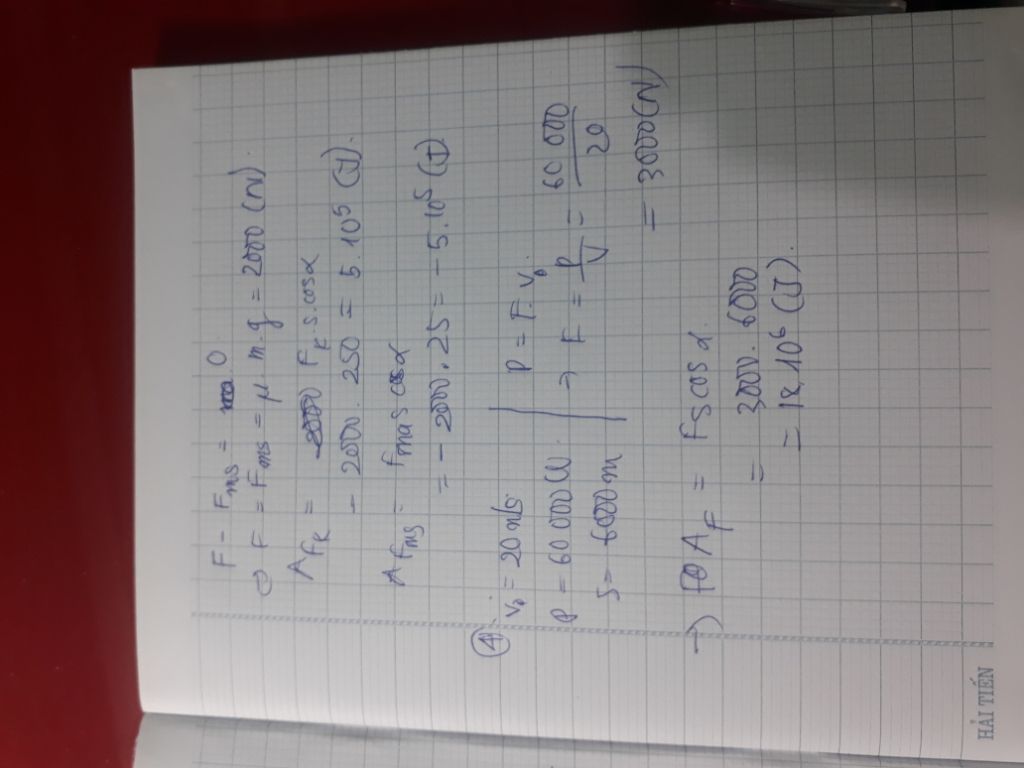 F - Fms = 0
⇔ F = Fms = μ.m.g = 2000 (N).
AFk = Fk.s.cosα
= 2000.250 = 5.10⁵ (J).
AFms = Fms s cosα
= - 2000.25 = - 5.10⁵ (J)
④ v₀ = 20 m/s
P = 60 000 W
S = 6000 m
P = F.v₀.
→ F = P/V = 60 000/20
= 3000 (N)
→ AF = F s cosα.
= 3000.6000
= 18.10⁶ (J).
HẢI TIẾN